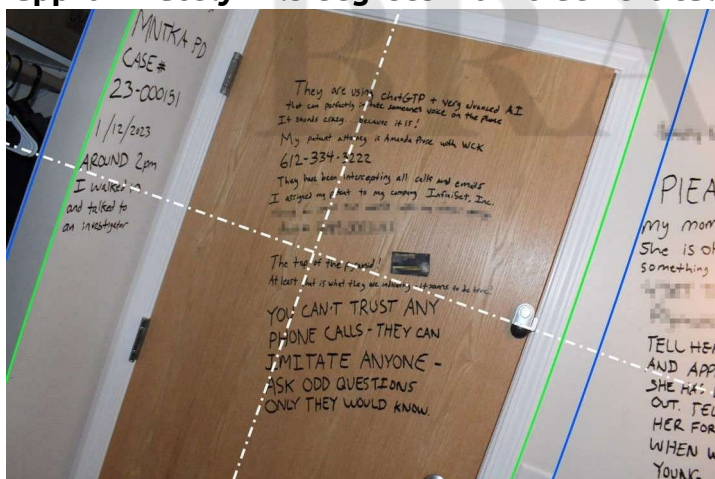 MNTKA PD
CASE#
23-000151
1/12/2023
AROUND 2pm
I walked in
and talked to
an investigator
They are using ChatGTP + very advanced A.I
that can perfectly someones voice on the phone
It sounds crazy... because it is!
My patent attorney is Amanda Prose with WCK
612-334-3222
They have been intercepting all calls and emails
I assigned my patent to my company InfiniSet, Inc.
The top of the pyramid!
At least that is what they are indicating - it seems to be true.
YOU CAN'T TRUST ANY
PHONE CALLS - THEY CAN
IMITATE ANYONE -
ASK ODD QUESTIONS
ONLY THEY WOULD KNOW.
my mom
She is
something
TELL HER
AND
SHE HAS
OUT. TELL
HER FOR
WHEN
YOUNG